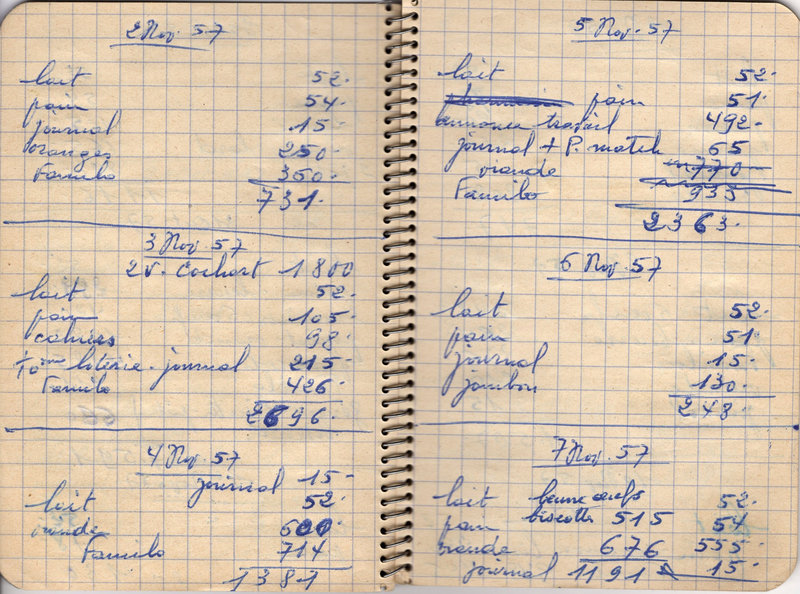 2 Nov. 57
lait 52.
pain 54.
journal 15.
oranges 250.
Familo 360.
731.
3 Nov 57
2 v. Cochort 1800
lait 52.
pain 105.
cahiers 98.
1/10ème loterie. journal 215.
Familo 426.
2696.
4 Nov. 57
journal 15.
lait 52.
viande 600.
Familo 714
1381
5 Nov. 57
lait 52.
pain 51.
annonce travail 492.
journal + P. match 65
viande 770
Familo 935
2363.
6 Nov. 57
lait 52.
pain 51.
journal 15.
jambon 130.
248.
7 Nov. 57
lait beurre œufs 52.
pain biscotte 515 54
viande 676 555.
journal 1191 15.